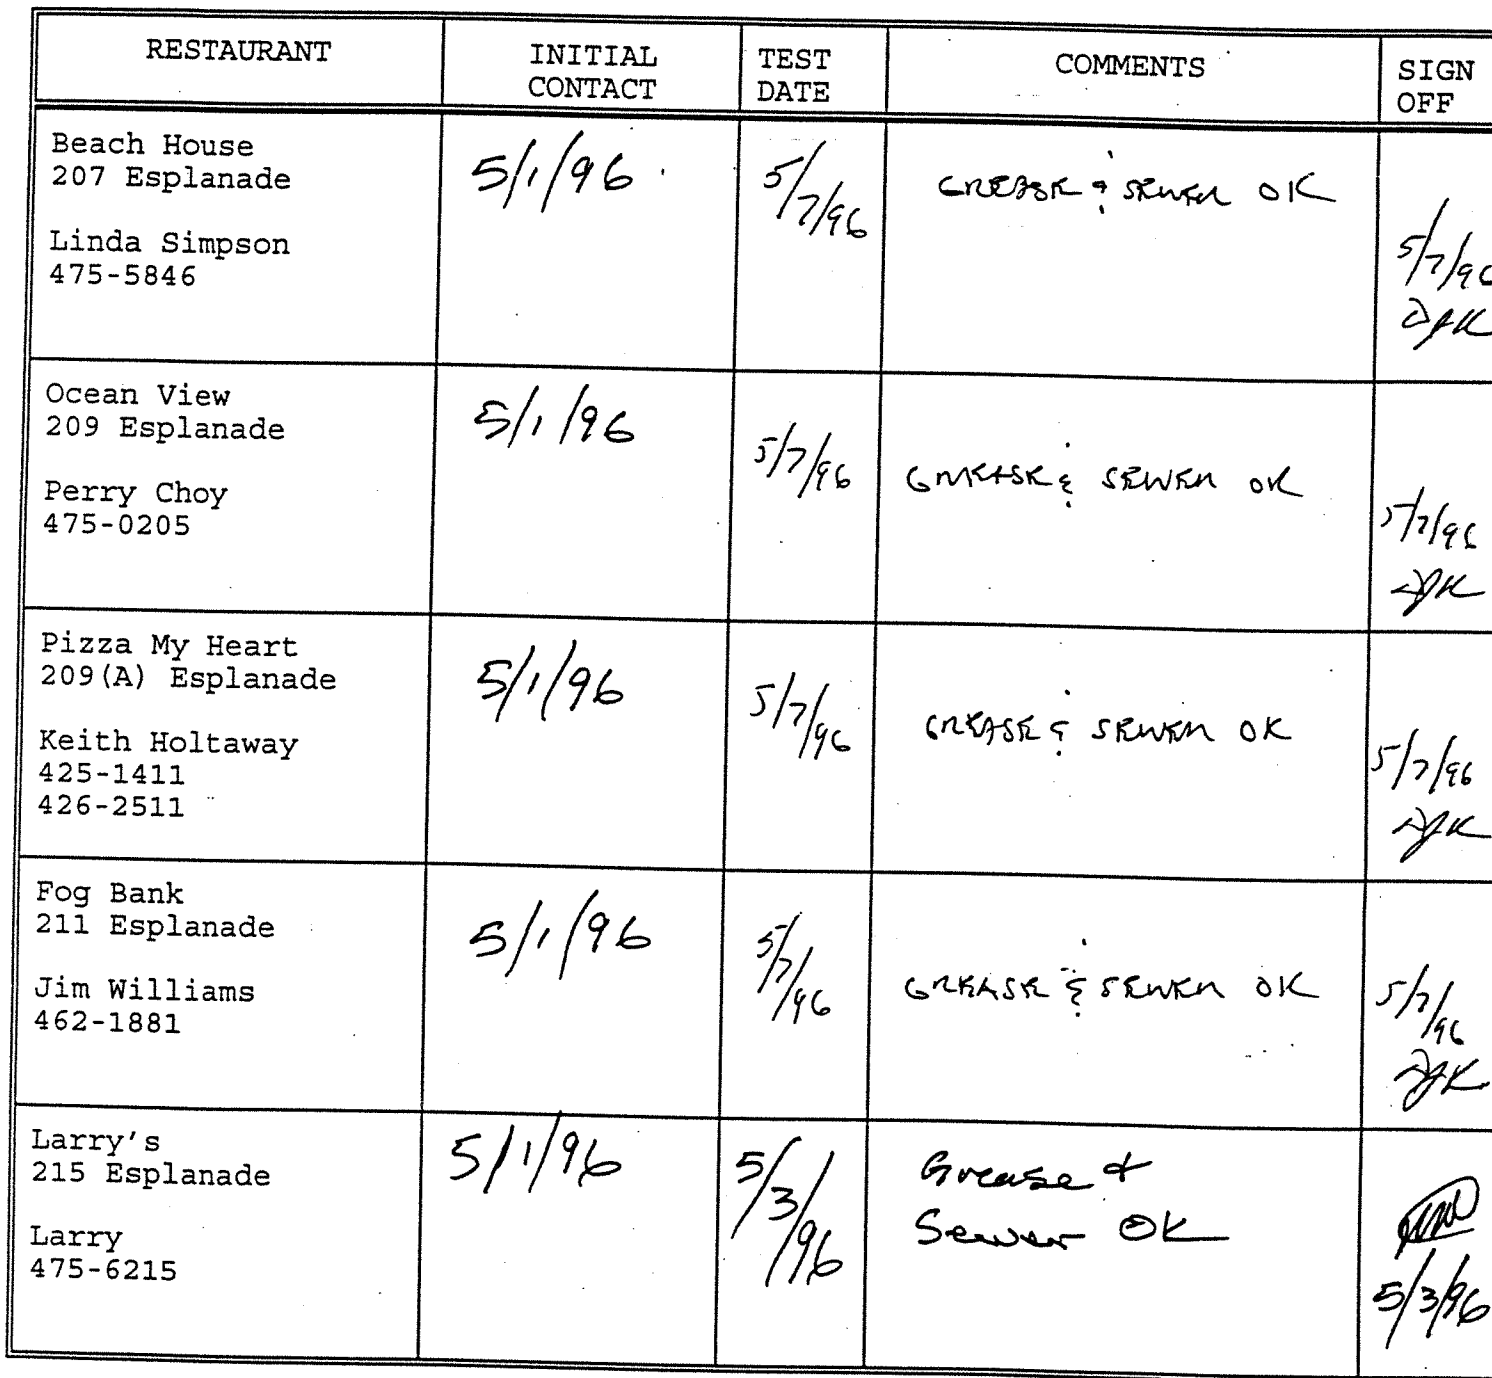 RESTAURANT INITIAL CONTACT TEST DATE COMMENTS SIGN OFF
Beach House
207 Esplanade
Linda Simpson
475-5846
5/1/96
5/7/96
GREASE & SEWER OK
5/7/96
Ocean View
209 Esplanade
Perry Choy
475-0205
5/1/96
5/7/96
GREASE & SEWER OK
5/7/96
Pizza My Heart
209(A) Esplanade
Keith Holtaway
425-1411
426-2511
5/1/96
5/7/96
GREASE & SEWER OK
5/7/96
Fog Bank
211 Esplanade
Jim Williams
462-1881
5/1/96
5/7/96
GREASE & SEWER OK
5/7/96
Larry's
215 Esplanade
Larry
475-6215
5/1/96
5/3/96
Grease &
Sewer OK
5/3/96